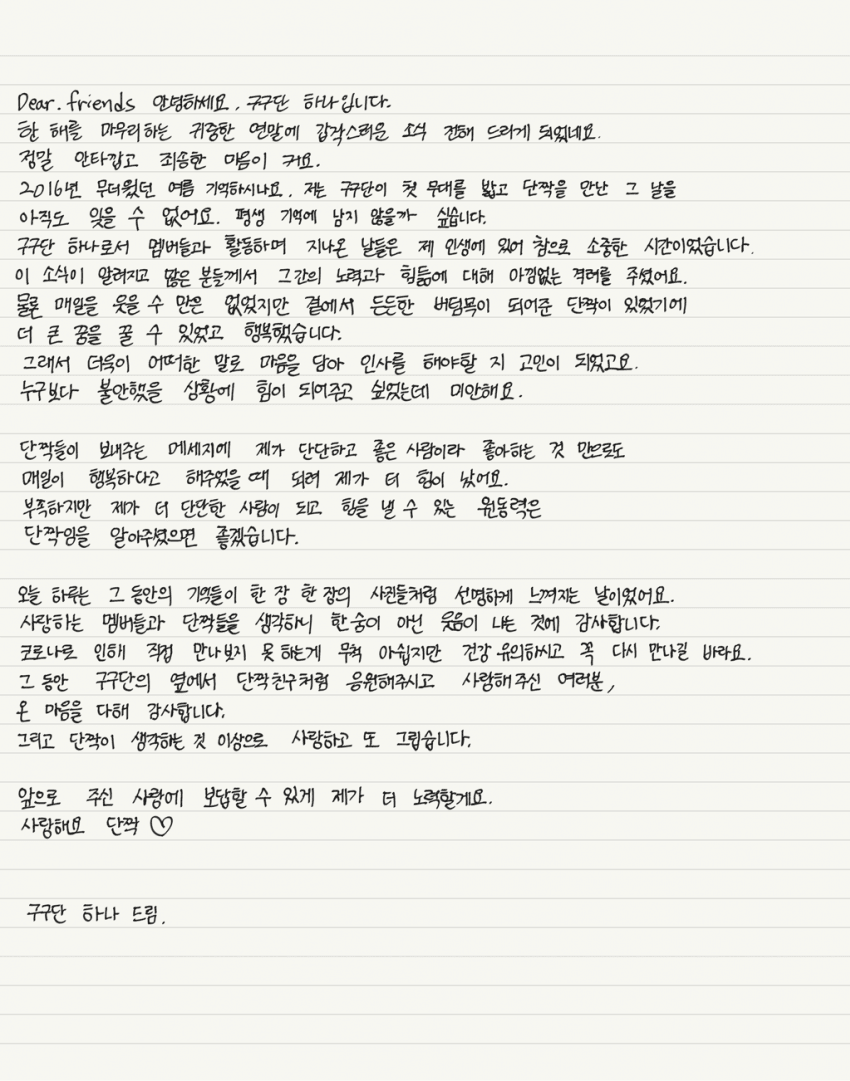 Dear. friends 안녕하세요, 구구단 하나입니다.
한 해를 마무리하는 귀중한 연말에 갑작스러운 소식 전해 드리게 되었네요.
정말 안타깝고 죄송한 마음이 커요.
2016년 무더웠던 여름 기억하시나요, 저는 구구단이 첫 무대를 밟고 단짝을 만난 그 날을
아직도 잊을 수 없어요. 평생 기억에 남지 않을까 싶습니다.
구구단 하나로서 멤버들과 활동하며 지나온 날들은 제 인생에 있어 참으로 소중한 시간이었습니다.
이 소식이 알려지고 많은 분들께서 그간의 노력과 힘듦에 대해 아낌없는 격려를 주셨어요.
물론 매일을 웃을 수 만은 없었지만 곁에서 든든한 버팀목이 되어준 단짝이 있었기에
더 큰 꿈을 꿀 수 있었고 행복했습니다.
그래서 더욱이 어떠한 말로 마음을 담아 인사를 해야할 지 고민이 되었고요.
누구보다 불안했을 상황에 힘이 되어주고 싶었는데 미안해요.
단짝들이 보내주는 메세지에 제가 단단하고 좋은 사람이라 좋아하는 것 만으로도
매일이 행복하다고 해주었을 때 되려 제가 더 힘이 났어요.
부족하지만 제가 더 단단한 사람이 되고 힘을 낼 수 있는 원동력은
단짝임을 알아주셨으면 좋겠습니다.
오늘 하루는 그 동안의 기억들이 한 장 한 장의 사진들처럼 선명하게 느껴지는 날이었어요.
사랑하는 멤버들과 단짝들을 생각하니 한숨이 아닌 웃음이 나는 것에 감사합니다.
코로나로 인해 직접 만나보지 못 하는게 무척 아쉽지만 건강 유의하시고 꼭 다시 만나길 바라요.
그 동안 구구단의 옆에서 단짝친구처럼 응원해주시고 사랑해주신 여러분,
온 마음을 다해 감사합니다.
그리고 단짝이 생각하는 것 이상으로 사랑하고 또 그립습니다.
앞으로 주신 사랑에 보답할 수 있게 제가 더 노력할게요.
사랑해요 단짝 ♡
구구단 하나 드림.